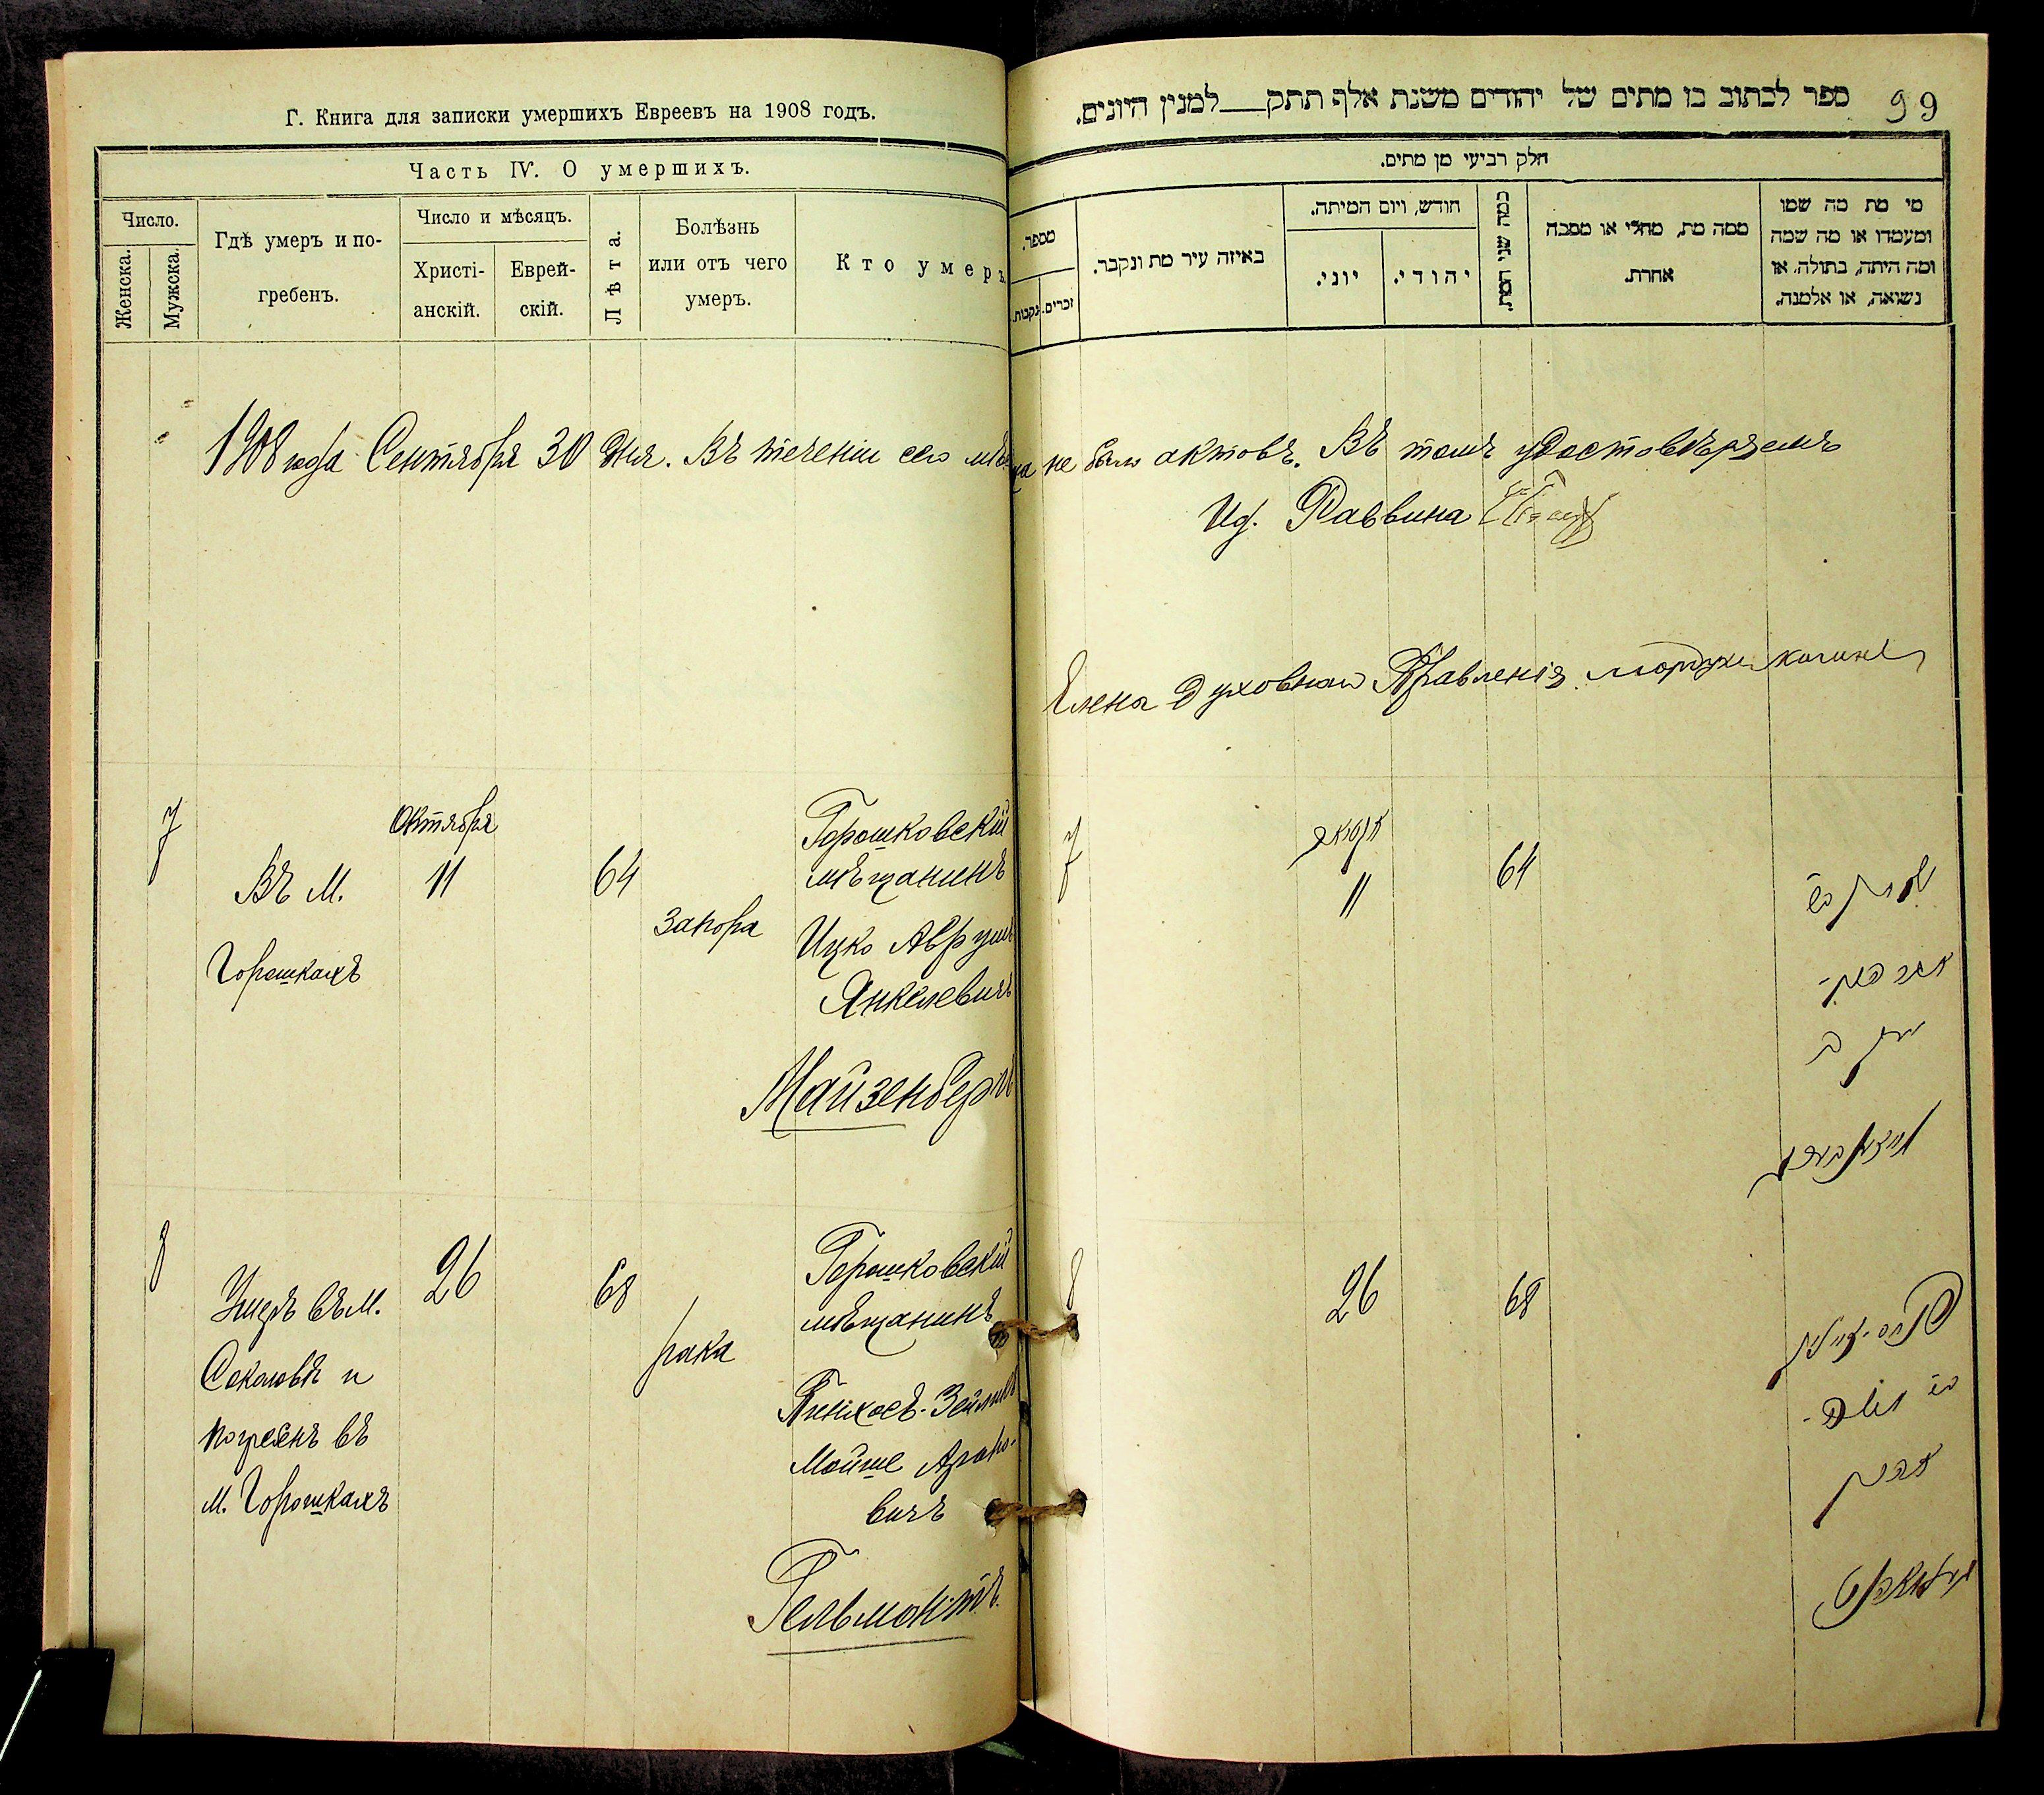 Г. Книга для записки умершихъ Евреевъ на 1908 годъ.
Часть IV. О умершихъ.
Число.
Женска.
Мужска.
Гдѣ умеръ и по-
гребенъ.
Число и мѣсяцъ.
Христі-
анскій.
Еврей-
скій.
Лѣта.
Болѣзнь
или отъ чего
умеръ.
Кто умеръ
1908 года Сентября 30 дня. Въ теченіи сего
7
Въ М.
Горошкахъ
Октября
11
64
запора
Горошковскій
мѣщанинъ
Ицко Аврумъ
Янкелевичъ
Майзенбергъ
8
Умеръ въ М.
Соколовѣ и
погребенъ въ
м. Горошкахъ
26
68
рака
Горошковскій
мѣщанинъ
Пинхосъ-Зейликъ
Мойше Ароно-
вичъ
Гельмонтъ
ספר לכתוב בו מתים של יהודים משנת אלף תתק למנין היונים.
99
חלק רביעי מן מתים.
מספר.
נקבות.
זכרים.
באיזה עיר מת ונקבר.
חודש, ויום המיתה.
יוני.
יהודי.
כמה שני המת.
ממה מת, מחלי או מסבה
אחרת.
מי מת מה שמו
ומעמדו או מה שמה
ומה היתה, בתולה, או
נשואה, או אלמנה.
не было актовъ. Въ томъ удостовѣряемъ
Раввина
Члена Духовнаго Правленія
7
11
64
8
26
68